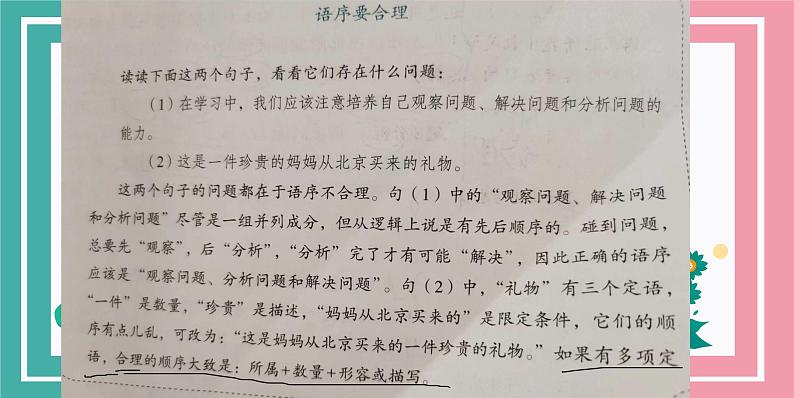 语序要合理
读读下面这两个句子，看看它们存在什么问题：
（1）在学习中，我们应该注意培养自己观察问题、解决问题和分析问题的
能力。
（2）这是一件珍贵的妈妈从北京买来的礼物。
这两个句子的问题都在于语序不合理。句（1）中的“观察问题、解决问题
和分析问题”尽管是一组并列成分，但从逻辑上说是有先后顺序的。碰到问题，
总要先“观察”，后“分析”，“分析”完了才有可能“解决”，因此正确的语序
应该是“观察问题、分析问题和解决问题”。句（2）中，“礼物”有三个定语，
“一件”是数量，“珍贵”是描述，“妈妈从北京买来的”是限定条件，它们的顺
序有点儿乱，可改为：“这是妈妈从北京买来的一件珍贵的礼物。”如果有多项定
语，合理的顺序大致是：所属+数量+形容或描写。